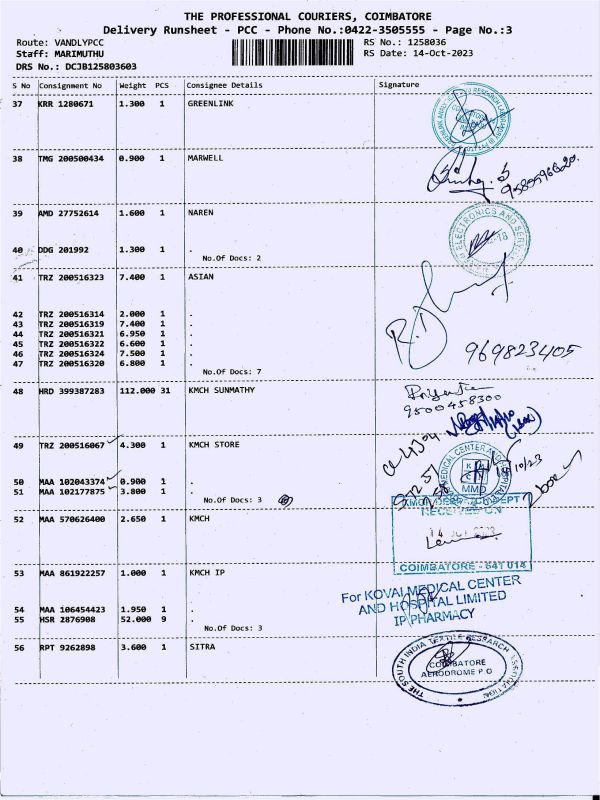 THE PROFESSIONAL COURIERS, COIMBATORE
Delivery Runsheet - PCC - Phone No.:0422-3505555 - Page No.:3
Route: VANDLYPCC RS No.: 1258036
Staff: MARIMUTHU RS Date: 14-Oct-2023
DRS No.: DCJB125803603
S No Consignment No Weight PCS Consignee Details Signature
37 KRR 1280671 1.300 1 GREENLINK
38 TMG 200500434 0.900 1 MARWELL
39 AMD 27752614 1.600 1 NAREN
ELECTRONICS AND
40 DDG 201992 1.300 1 .
No.Of Docs: 2
41 TRZ 200516323 7.400 1 ASIAN
42 TRZ 200516314 2.000 1 .
43 TRZ 200516319 7.400 1 .
44 TRZ 200516321 6.950 1 .
45 TRZ 200516322 6.600 1 .
46 TRZ 200516324 7.500 1 .
47 TRZ 200516320 6.800 1 .
969823405
No.Of Docs: 7
48 HRD 399387283 112.000 31 KMCH SUNMATHY
9500458300
49 TRZ 200516067 4.300 1 KMCH STORE
MEDICAL CENTER AND HOSPITAL
50 MAA 102043374 0.900 1 .
51 MAA 102177875 3.800 1 .
MMD
No.Of Docs: 3
52 MAA 570626400 2.650 1 KMCH
RECEIVED ON
COIMBATORE - 641 014
53 MAA 861922257 1.000 1 KMCH IP
For KOVAI MEDICAL CENTER
AND HOSPITAL LIMITED
IP PHARMACY
54 MAA 106454423 1.950 1 .
55 HSR 2876908 52.000 9 .
No.Of Docs: 3
56 RPT 9262898 3.600 1 SITRA
THE SOUTH INDIA TEXTILE RESEARCH ASSOCIATION
COIMBATORE
AERODROME P O